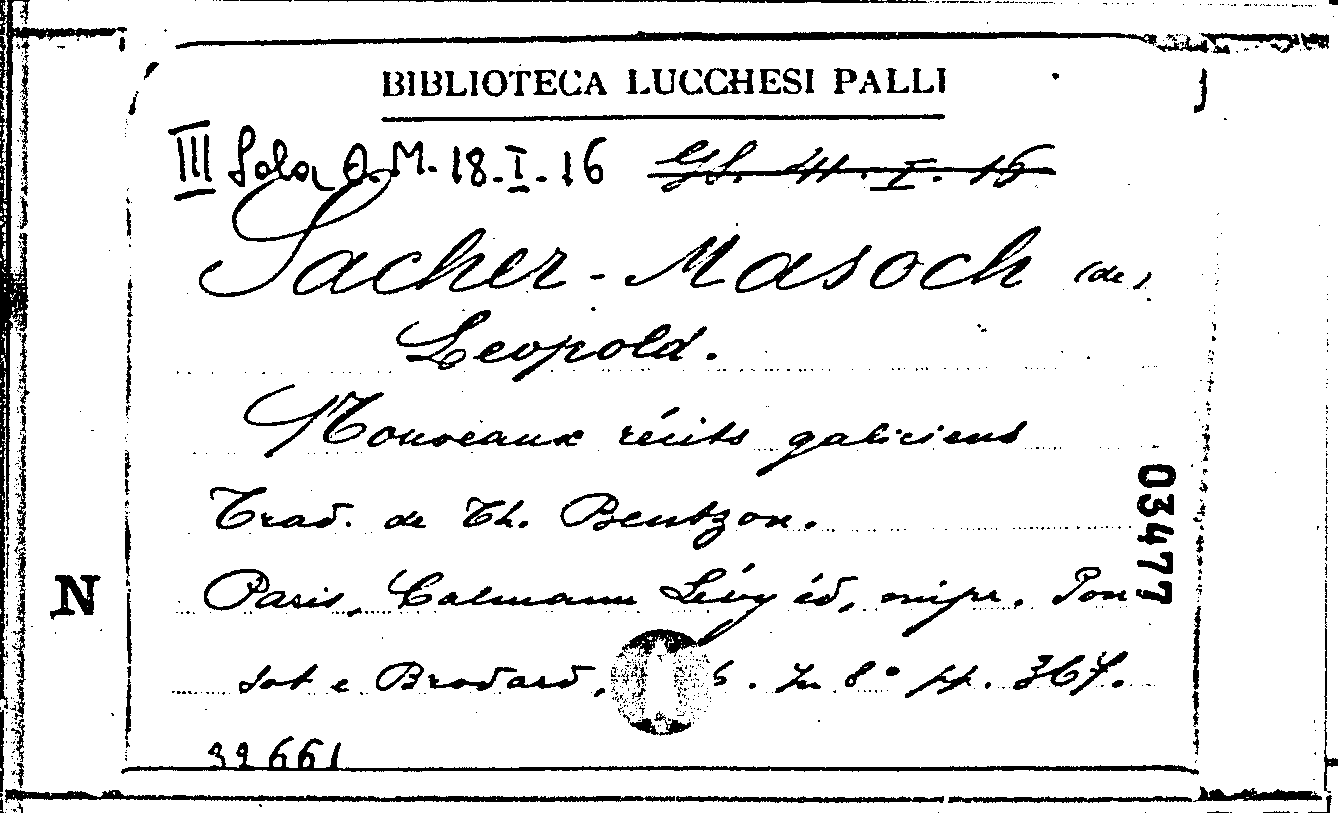 BIBLIOTECA LUCCHESI PALLI
III Sala O. M. 18. I. 16
Sacher-Masoch (de)
Leopold.
Nouveaux récits galiciens
Trad. de Th. Bentzon.
03477
Paris, Calmann Lévy éd, impr. Pon
N
sot e Brodard, . In 8° pp. 367.
32661